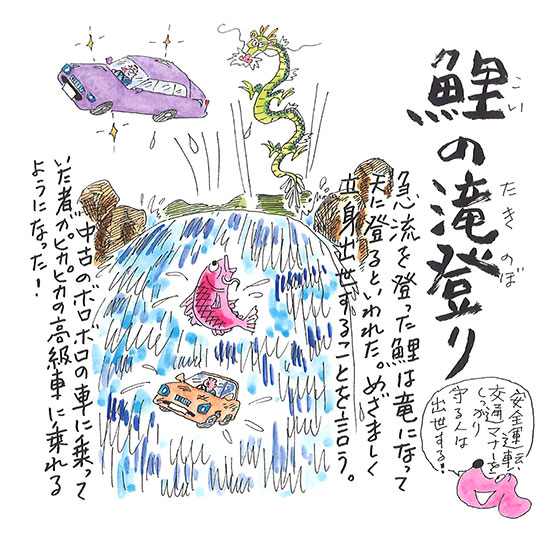 鯉の滝登り
こい
たき
のぼ
急流を登った鯉は竜になって
天に登るといわれた。めざましく
立身出世することを言う。
中古のボロボロの車に乗って
いた者が、ピカピカの高級車に乗れる
ようになった!
安全運転
交通マナーを
しっかり
守る人は
出世する!